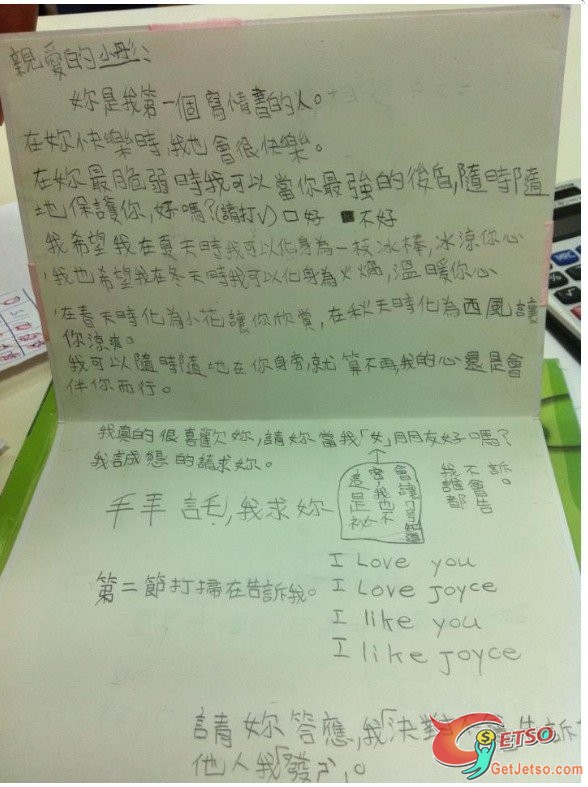 親愛的小彤:
妳是我第一個寫情書的人。
在妳快樂時,我也會很快樂。
在妳最脆弱時我可以當你最強的後盾,隨時隨
地保護你,好嗎?(請打V)□好 ■不好
我希望我在夏天時我可以化身為一枝冰棒,冰涼你心
我也希望我在冬天時我可以化身為火爐,溫暖你心
在春天時化為小花讓你欣賞,在秋天時化為西風讓
你涼爽。
我可以隨時隨地在你身旁,就算不再,我的心還是會
伴你而行。
我真的很喜歡妳,請妳當我「女」朋友好嗎?
我誠懇的請求妳。
這是祕
密我也不
會讓
我不
誰會
都告
訴。
我求妳
I Love you
I Love joyce
I like you
I like joyce
第二節打掃在告訴我。
請妳答應,我「決對
告訴
他人我「發
GETSO
GetJetso.com